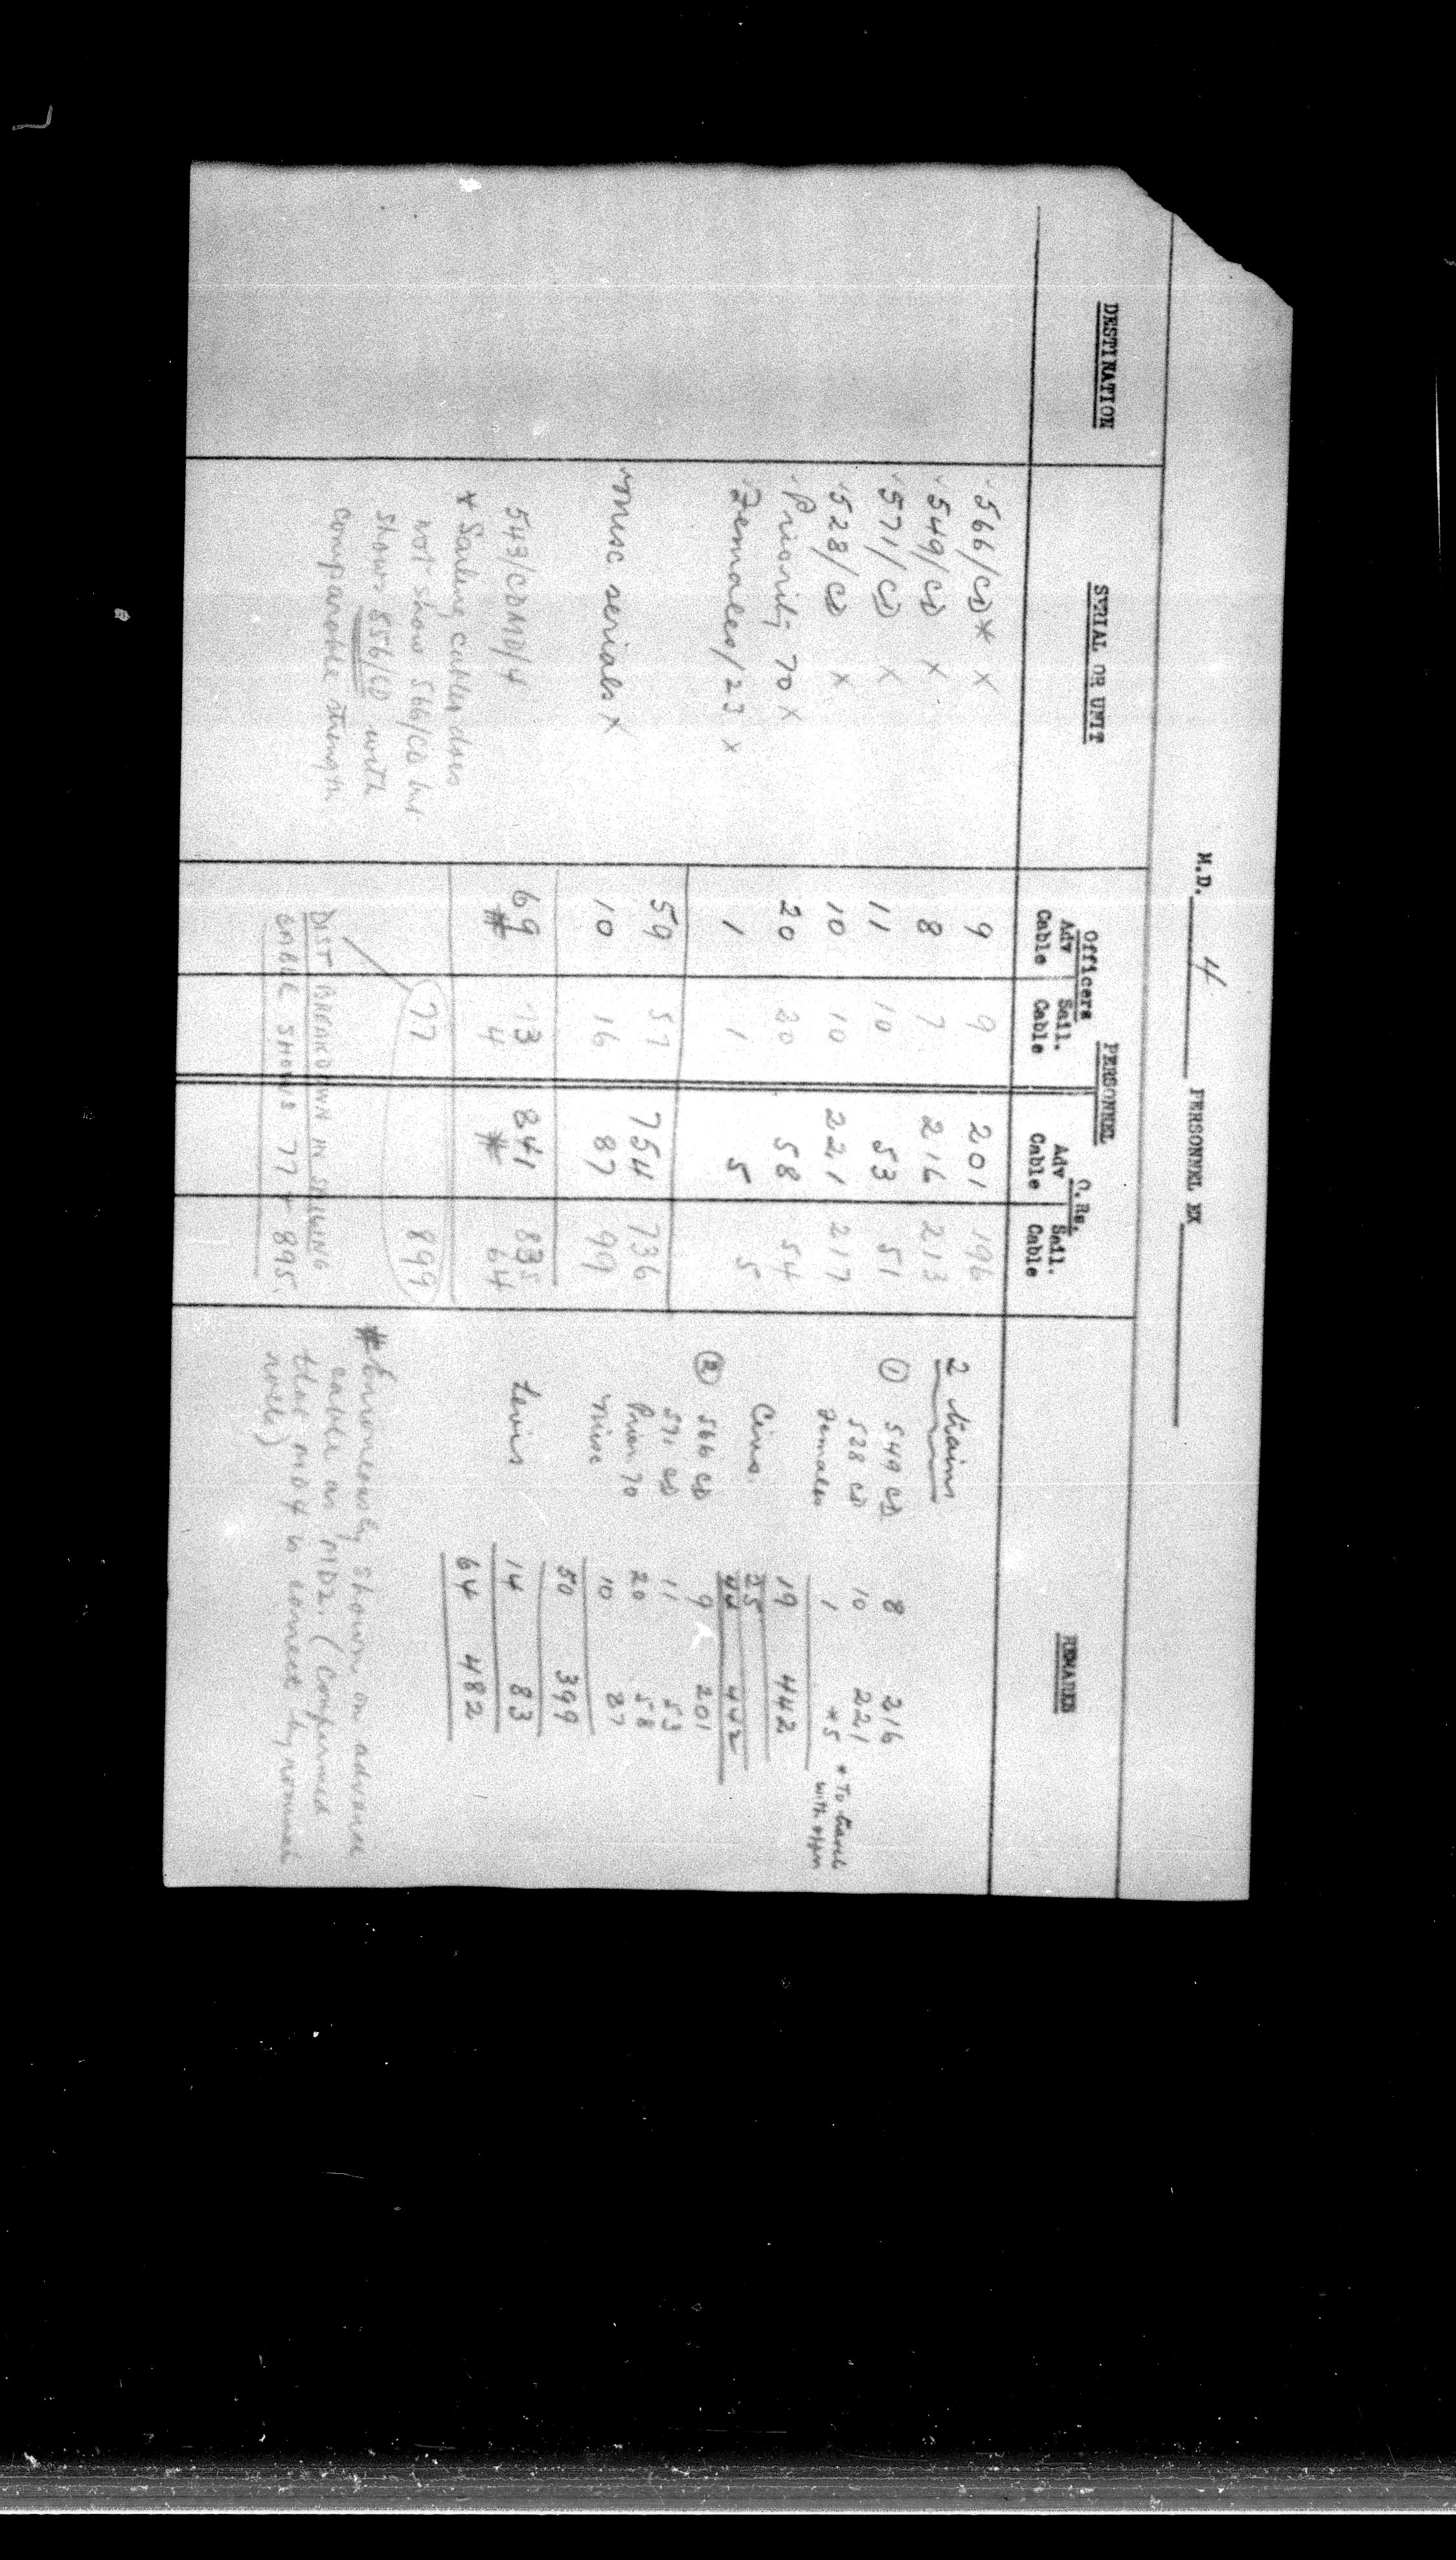 M.D. 4 PERSONNEL EX
DESTINATION SERIAL OR UNIT PERSONNEL REMARKS
Officers O.Rs.
Adv Cable Sail. Cable Adv Cable Sail. Cable
566/CD * x 9 9 201 196
549/CD x 8 7 216 213
571/CD x 11 10 53 51
528/CD x 10 10 221 217
Priority 70 x 20 20 58 54
Females/23 x 1 1 5 5
59 57 754 736
Misc serials x 10 16 87 99
69 73 841 835
# 4 # 64
543/CDMD/4
77 899
* Sailing cable does
not show 566/CD but
shows 856/CD with
comparable strength
DIST BREAKDOWN IN SAILING
CABLE SHOWS 77 + 895.
2 trains
① 549 CD 8 216
528 CD 10 221
Females 1 *5 * To travel
with offrs
19 442
Civs. 25
44 442
② 566 CD 9 201
571 CD 11 53
Prior 70 20 58
Misc 10 87
50 399
Levis 14 83
64 482
# Erroneously shown on advance
cable as MD2. (Confirmed
that MD4 is correct by nominal
rolls)